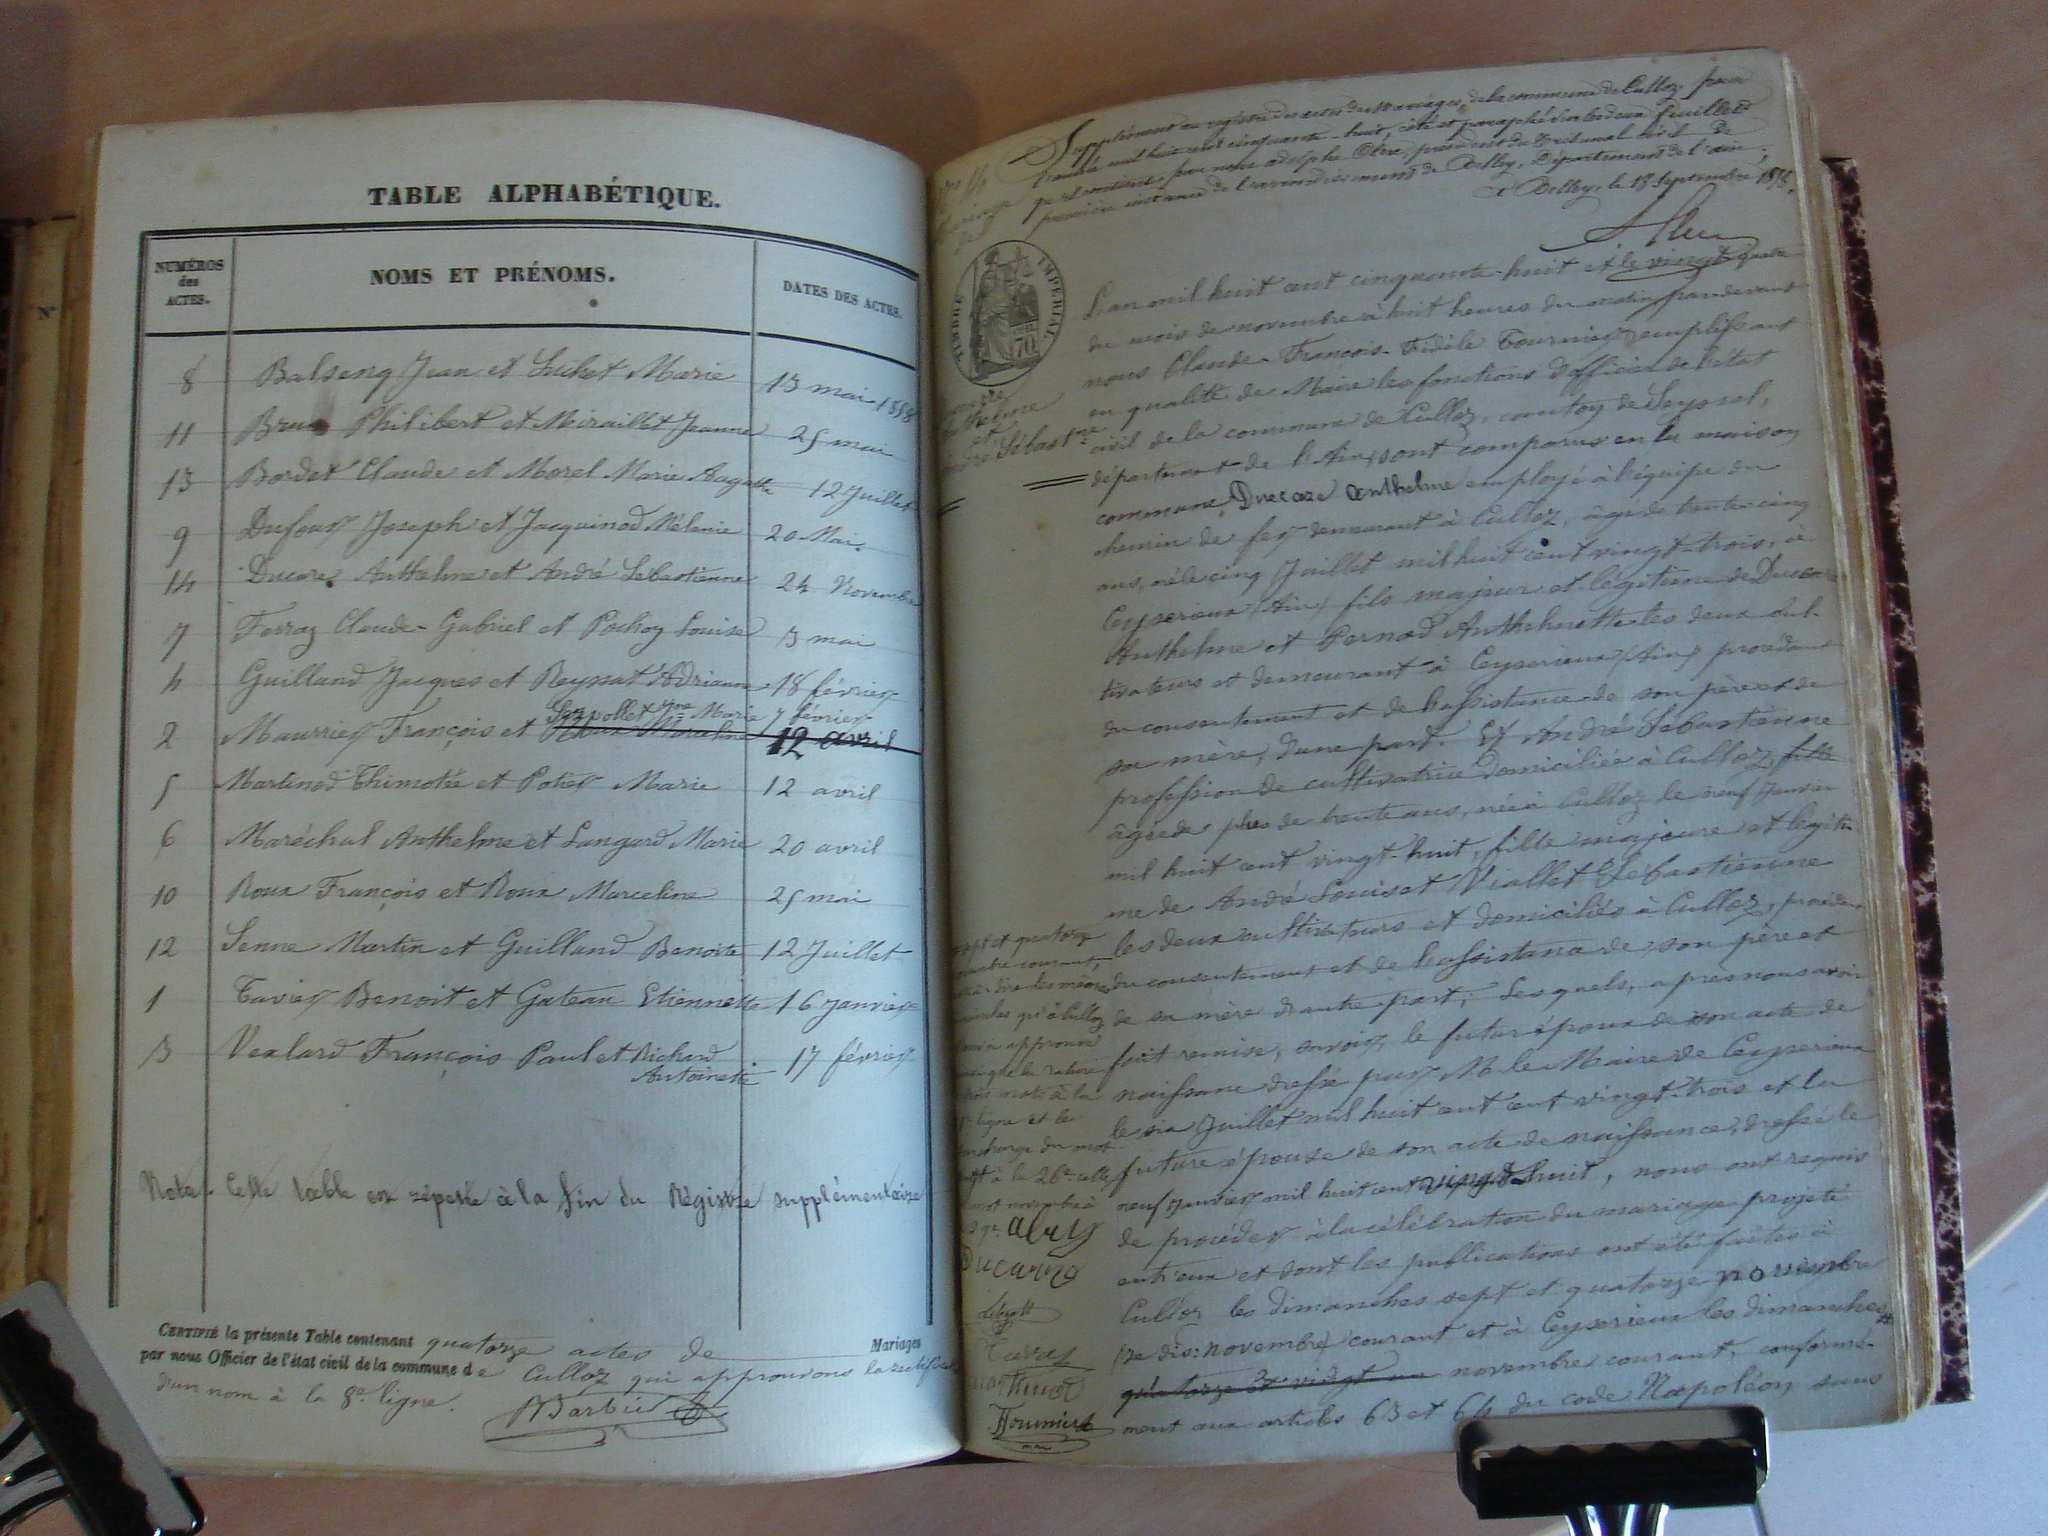 TABLE ALPHABÉTIQUE.
NUMÉROS des ACTES.
NOMS ET PRÉNOMS.
DATES DES ACTES.
8 Balseng Jean et Luchet Marie 13 mai 1858
11 Brun Philibert et Miraillet Jeanne 25 mai
13 Bordet Claude et Morel Marie Augustte 12 Juillet
9 Dufour Joseph et Jacquinod Mélanie 20 Mai.
14 Ducare Anthelme et André Sébastienne 24 Novembre
7 Ferraz Claude-Gabriel et Pochoy Louise 3 mai
4 Guilland Jacques et Reyssat Adrianne 18 février
Marie 7 février
2 Maurrier François et 12 avril
5 Martinod Thimotée et Potier Marie 12 avril
6 Maréchal Anthelme et Langard Marie 20 avril
10 Roux François et Roux Marceline 25 mai
12 Senne Martin et Guilland Benoite 12 Juillet
1 Tavier Benoit et Gateau Etiennette 16 Janvier
3 Vealard François Paul et Richard 17 février
Antoinette
Nota. Cette table est répétée à la fin du Régistre supplémentaire
CERTIFIÉ la présente Table contenant quatorze actes de Mariages
par nous Officier de l'état civil de la commune de Culloz qui approuvons la
d'un nom à la 8e ligne.
Barbier
Supplément au registre des actes de Mariages, de la commune de Culloz, pour
mil huit cent cinquante-huit, côté et paraphé feuillets
par nous Adolphe président du Tribunal civil de
première instance de l'arrondissement de Belley, Département de l'ain,
à Belley, le 18 Septembre 1858.
TIMBRE IMPÉRIAL
70
L'an mil huit cent cinquante-huit et le vingt quatre
du mois de novembre à huit heures du matin par devant
nous Claude-François-Fidèle Tournier remplissant
en qualité de Maire les fonctions d'officier de l'état
civil de la commune de Culloz, canton de Seyssel,
département de l'Ain, sont comparus en la maison
commune, Ducare Anthelme employé à l'équipe du
chemin de fer demeurant à Culloz, âgé de trente-cinq
ans, né le cinq Juillet mil huit cent vingt-trois, à
Ceyserieux (Ain) fils majeur et légitime de Ducare
Anthelme et Pernod Anthelmette les deux cul-
tivateurs et demeurant à Ceyserieux (Ain) procédant
du consentement et de l'assistance de son père et de
sa mère, d'une part. Et André Sébastienne
profession de cultivatrice domiciliée à Culloz, fille
âgée de plus de trente ans, née à Culloz le neuf Janvier
mil huit cent vingt-huit, fille majeure et légiti-
me de André Louis et Viallet Sébastienne
les deux cultivateurs et domiciliés à Culloz, procédant
du consentement et de l'assistance de son père et
de sa mère d'autre part; Lesquels, après nous avoir
fait remise, savoir, le futur époux de son acte de
naissance dressé par M. le Maire de Ceyserieux
le six Juillet mil huit cent cent vingt-trois et la
future épouse de son acte de naissance, dressé le
neuf Janvier mil huit cent vingt-huit, nous ont requis
de procéder à la célébration du mariage projeté
entr'eux et dont les publications ont été faites à
Culloz les dimanches sept et quatorze novembre
novembre courant et à Ceyserieux les dimanches
quatorze et vingt un novembre courant, conformé-
ment aux articles 63 et 64 du code Napoléon sans
et
André Sébastne
sept et quatorze
courant,
qu'à Culloz
approuvé
que la rature
mots à la
ligne et le
surcharge du mot
à la 26e
mot novembre
Ducarre
Tavier
Tournier